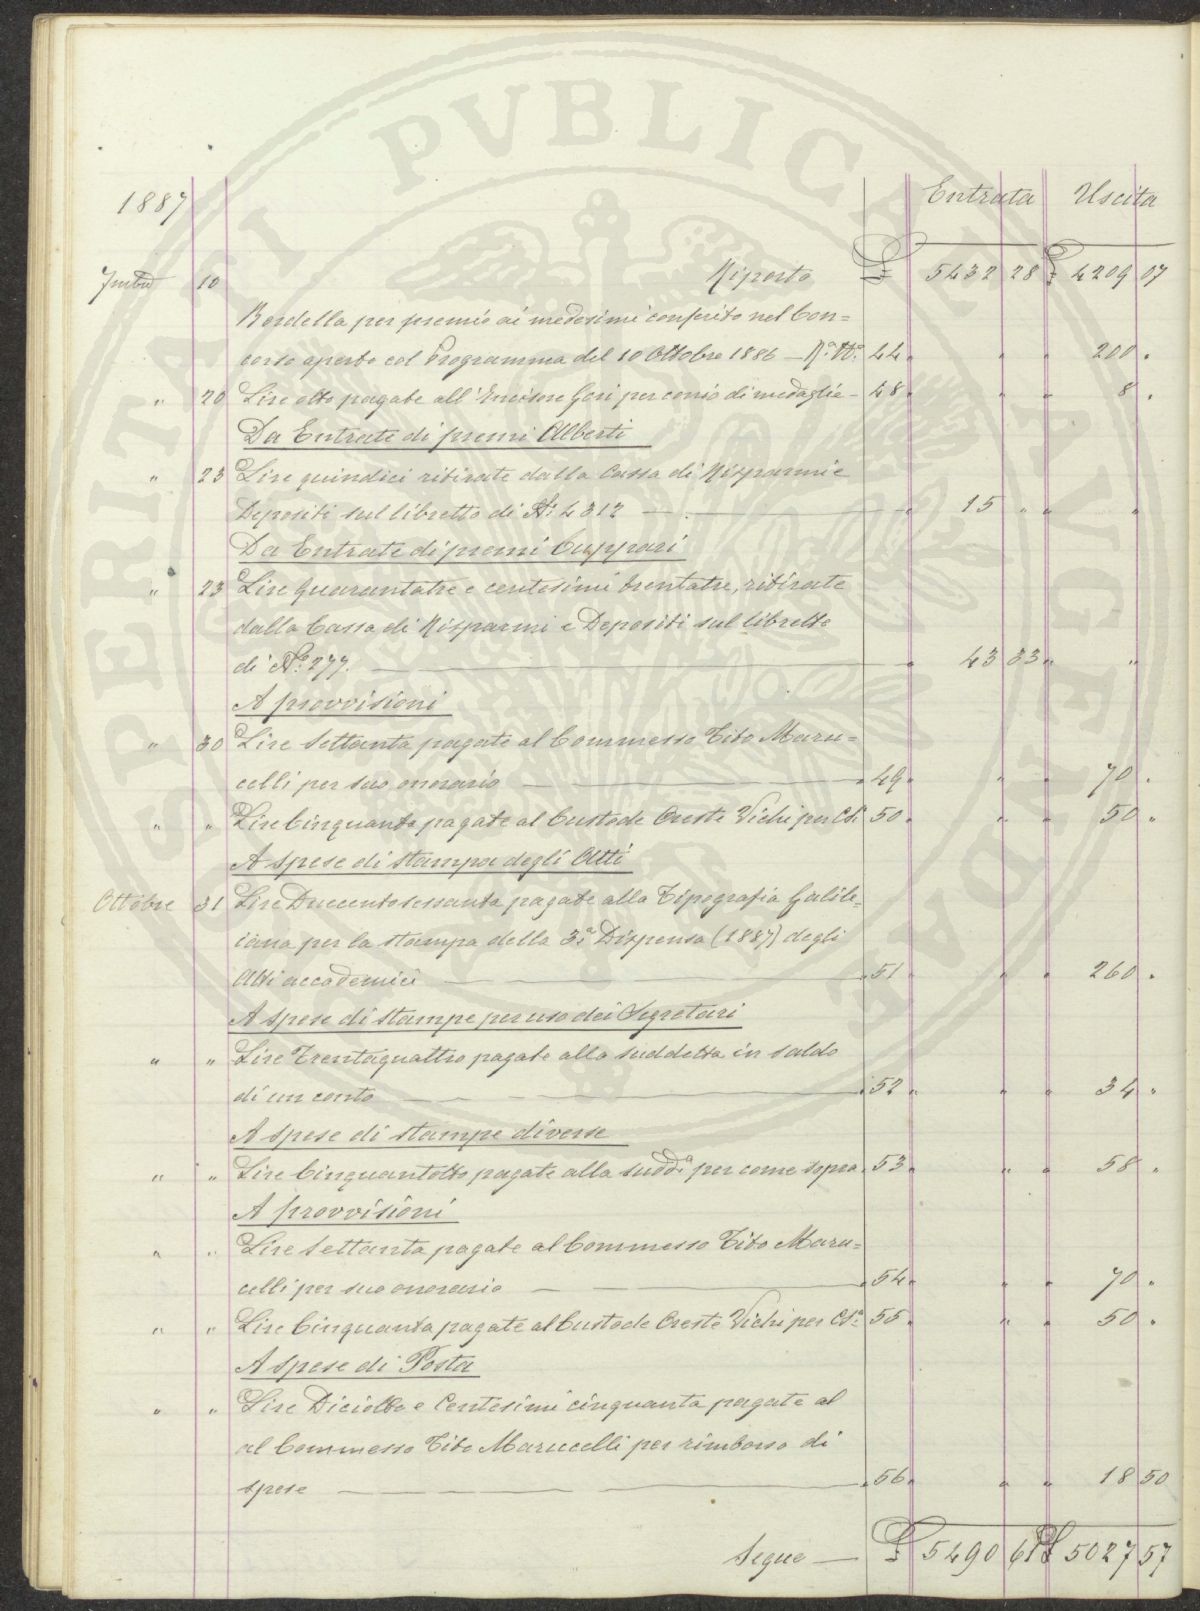 PROSPERITATI PVBLICAE AVGENDAE
1887 Entrata Uscita
7mbre 10 Riporto £ 5432 28 £ 4209 07
Bordella per premio ai medesimi conferito nel Con=
corso aperto col Programma del 10 Ottobre 1886 — 44 " " " 200 "
" 20 Lire otto pagate all'Incisore Gori per conio di medaglie – 48 " " " 8 "
Da Entrate di premi Alberti
" 23 Lire quindici ritirate dalla Cassa di Risparmi e
Depositi sul libretto di N.o 4312 — " 15 " " "
Da Entrate di premi Cuppari
" 23 Lire Quarantatre e centesimi trentatre, ritirate
dalla Cassa di Risparmi e Depositi sul libretto
di N.o 277. — " 43 33 " "
A provvisioni
" 30 Lire Settanta pagate al Commesso Tito Maru=
celli per suo onorario — 49 " " " 70 "
" " Lire Cinquanta pagate al Custode Oreste Vichi per Cs. 50 " " " 50 "
A spese di stampa degli Atti
Ottobre 31 Lire Duecentosessanta pagate alla Tipografia Galile=
iana per la stampa della 3.a Dispensa (1887) degli
Atti accademici — 51 " " " 260 "
A spese di stampe per uso dei Segretari
" " Lire Trentaquattro pagate alla suddetta in saldo
di un conto — 52 " " " 34 "
A spese di stampe diverse
" " Lire Cinquantotto pagate alla sudd.a per come sopra 53 " " " 58 "
A provvisioni
" " Lire Settanta pagate al Commesso Tito Maru=
celli per suo onorario — 54 " " " 70 "
" " Lire Cinquanta pagate al Custode Oreste Vichi per Cs. 55 " " " 50 "
A spese di Posta
" " Lire Diciotto e Centesimi cinquanta pagate al
al Commesso Tito Marucelli per rimborso di
spese — 56 " " " 18 50
Segue — £ 5490 61 £ 5027 57